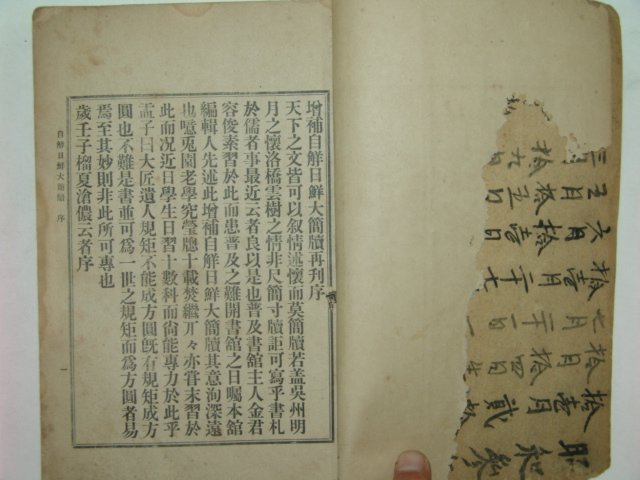 增補自解日鮮大簡牘再刊序
天下之文皆可以叙情述懷而莫簡牘若盖吳州明
月之懷洛橋雲樹之情非尺簡寸牘詎可寫乎書札
於儒者事最近云者良以是也普及書舘主人金君
容俊素習於此而患普及之難開書舘之日囑本舘
編輯人先述此增補自解日鮮大簡牘其意洵深遠
也噫兎園老學究瑩牕十載焚繼兀々亦甞末習於
此而况近日學生日習十數科而尙能專力於此乎
孟子曰大匠遺人規矩不能成方圓旣有規矩成方
圓也不難是書並可為一世之規矩而為方圓者易
焉至其妙則非此所可專也
歲壬子榴夏滄儂云者序
自解日鮮大簡牘 序
一
拾九日
五月拾五日
六月拾壹日
拾壹月二十七
七月二十一
拾日拾四
拾壹月貳
昭和參